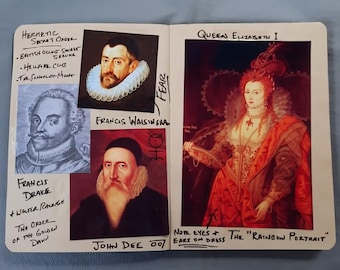 HERMETIC
SECRET ORDER
- BRITISH OCCULT SECRET
SERVICE
- HELLFIRE CLUB
- THE SCHOOL OF NIGHT
FEAR
FRANCIS WALSINGHAM
FRANCIS
DRAKE
+ WALTER RALEIGH
THE ORDER
OF THE GOLDEN
DAWN
HQ
JOHN DEE 007
QUEEN ELIZABETH I
NOTE EYES +
EARS ON DRESS
THE "RAINBOW PORTRAIT"